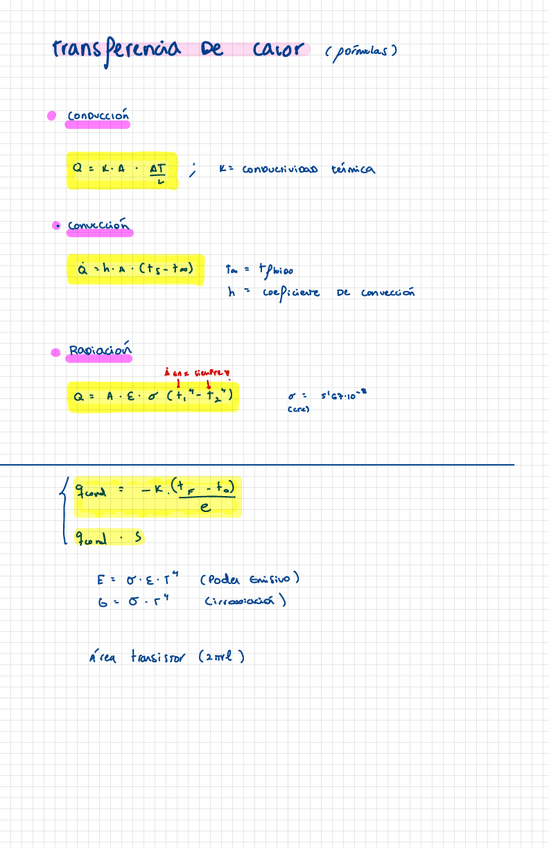 transferencia de calor (fórmulas)
Conducción
Q = K · A · ΔT/L ; K = conductividad térmica
Convección
Q̇ = h · A · (ts - t∞) t∞ = t fluido
h = coeficiente de convección
Radiación
Q = A · ε · σ (t₁⁴ - t₂⁴) σ = 5'67·10⁻⁸
(cte)
q cond = -K · (tF - t0)/e
q cond · S
E = σ · ε · T⁴ (Poder Emisivo)
G = σ · T⁴ (irradiación)
Área transistor (2πrl)